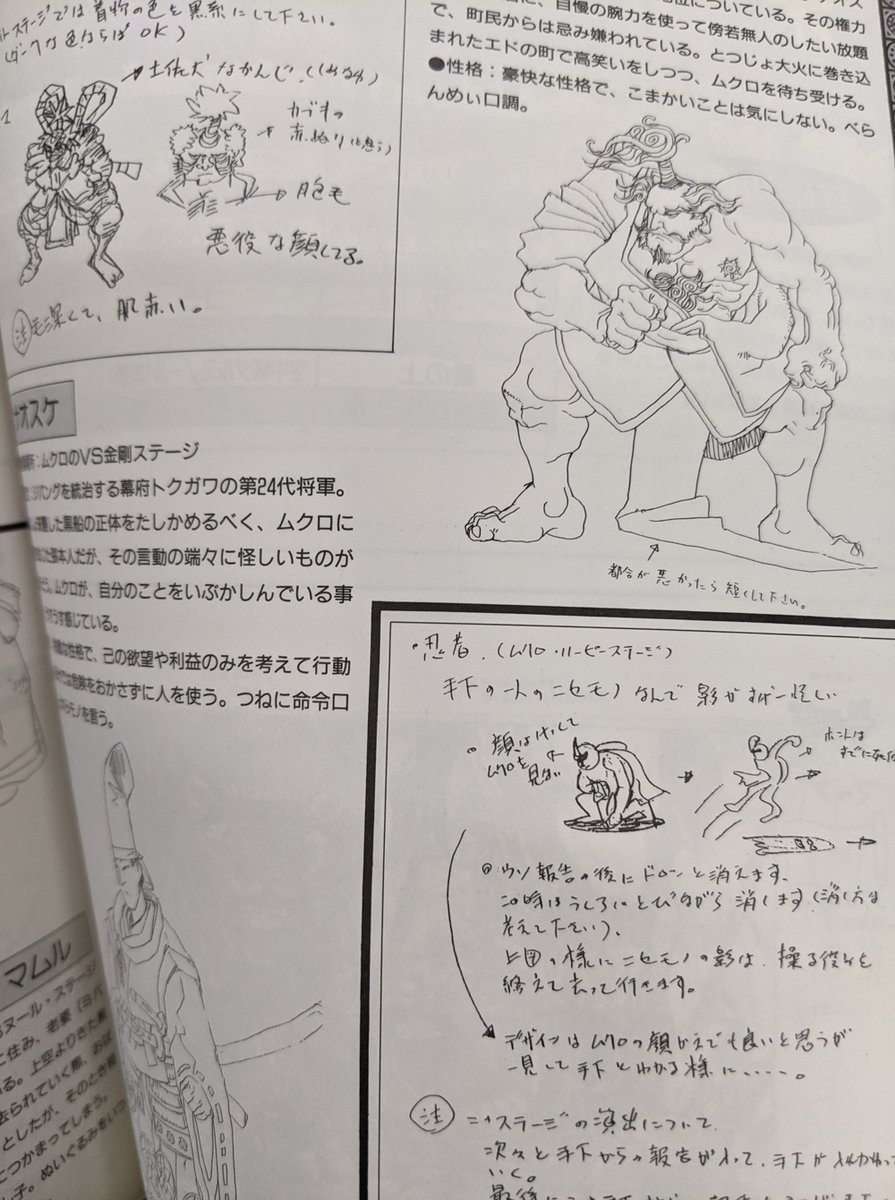 ステージでは着物の色を黒系にして下さい。
(ダークな色ならばOK)
土佐犬なかんじ。
カブキの
赤ぬり
胸毛
悪役な顔してる。
注 毛深くて、肌赤い。
位についている。その権力
に、自慢の腕力を使って傍若無人のしたい放題
で、町民からは忌み嫌われている。とつじょ大火に巻き込
まれたエドの町で高笑いをしつつ、ムクロを待ち受ける。
●性格：豪快な性格で、こまかいことは気にしない。べら
んめぃ口調。
都合が悪かったら短くして下さい。
オスケ
ムクロのVS金剛ステージ
パングを統治する幕府トクガワの第24代将軍。
した黒船の正体をたしかめるべく、ムクロに
本人だが、その言動の端々に怪しいものが
ムクロが、自分のことをいぶかしんでいる事
感じている。
性格で、己の欲望や利益のみを考えて行動
危険をおかさずに人を使う。つねに命令口
モノを言う。
・忍者.(ムクロ・ハーピーステージ)
手下の一人のニセモノなんで影がすげー怪しい
顔はけっして
ムクロを見ない
ホントは
すでに
ウソ報告の後にドローンと消えます、
この時はうしろにとびながら消します(消し方は
考えて下さい)。
上図の様にニセモノの影は、操る役を
終えて去って行きます。
デザインはムクロの顔かえでも良いと思うが
一見して手下とわかる様に……。
注 このステージの演出について、
次々と手下からの報告が入って、手下が
いく。
マムル
ヌール・ステージ
に住み、老婆
る。上空よりきた黒
去られていく際、おば
としたが、そのとき
につかまってしまう。
子。ぬいぐるみをいつ